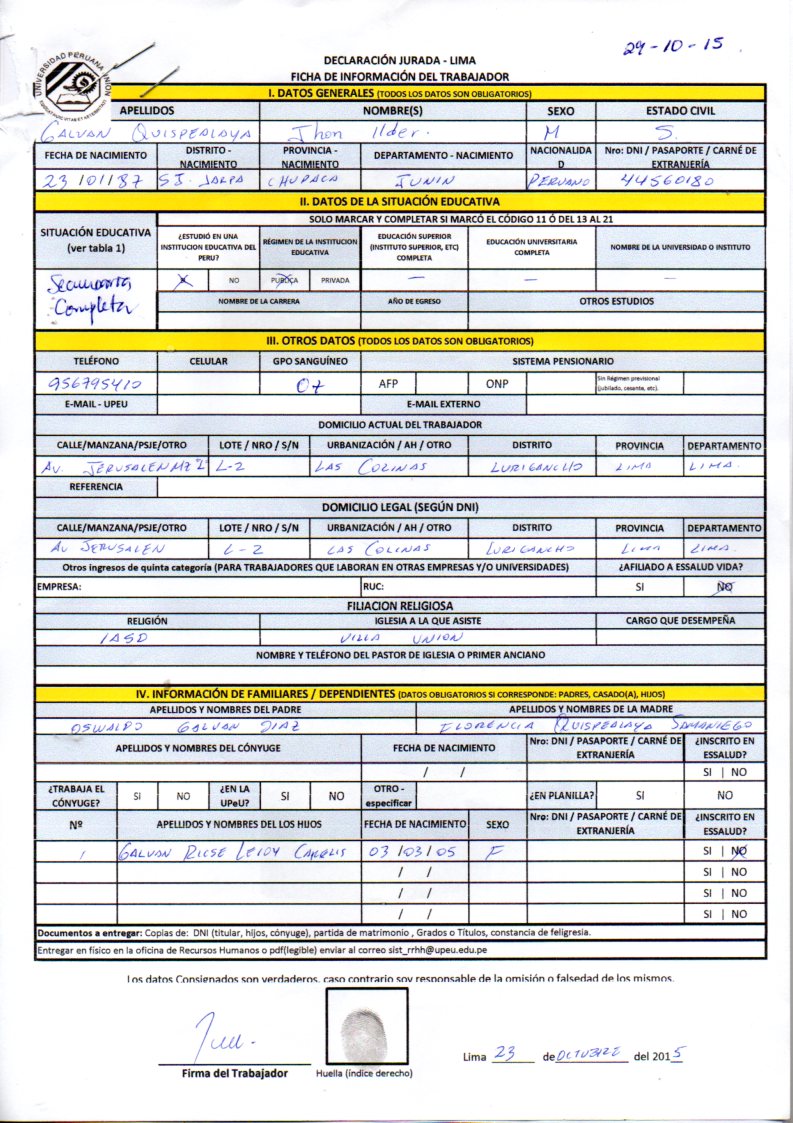 29-10-15
UNIVERSIDAD PERUANA UNION
DECLARACIÓN JURADA - LIMA
FICHA DE INFORMACIÓN DEL TRABAJADOR
I. DATOS GENERALES (TODOS LOS DATOS SON OBLIGATORIOS)
APELLIDOS NOMBRE(S) SEXO ESTADO CIVIL
GALVAN QUISPEALAYA Jhon Ilder. M S.
FECHA DE NACIMIENTO DISTRITO - NACIMIENTO PROVINCIA - NACIMIENTO DEPARTAMENTO - NACIMIENTO NACIONALIDAD Nro: DNI / PASAPORTE / CARNÉ DE EXTRANJERÍA
23/01/87 SJ. JARPA CHUPACA JUNIN PERUANO 44560180
II. DATOS DE LA SITUACIÓN EDUCATIVA
SOLO MARCAR Y COMPLETAR SI MARCÓ EL CÓDIGO 11 Ó DEL 13 AL 21
SITUACIÓN EDUCATIVA (ver tabla 1) ¿ESTUDIÓ EN UNA INSTITUCION EDUCATIVA DEL PERU? RÉGIMEN DE LA INSTITUCION EDUCATIVA EDUCACIÓN SUPERIOR (INSTITUTO SUPERIOR, ETC) COMPLETA EDUCACIÓN UNIVERSITARIA COMPLETA NOMBRE DE LA UNIVERSIDAD O INSTITUTO
Secundaria Completa X NO PUBLICA PRIVADA — — —
NOMBRE DE LA CARRERA AÑO DE EGRESO OTROS ESTUDIOS
III. OTROS DATOS (TODOS LOS DATOS SON OBLIGATORIOS)
TELÉFONO CELULAR GPO SANGUÍNEO SISTEMA PENSIONARIO
956795410 O+ AFP ONP Sin Régimen previsional (jubilado, cesante, etc).
E-MAIL - UPEU E-MAIL EXTERNO
DOMICILIO ACTUAL DEL TRABAJADOR
CALLE/MANZANA/PSJE/OTRO LOTE / NRO / S/N URBANIZACIÓN / AH / OTRO DISTRITO PROVINCIA DEPARTAMENTO
AV. JERUSALEN MZ L-2 LAS COLINAS LURIGANCHO LIMA LIMA.
REFERENCIA
DOMICILIO LEGAL (SEGÚN DNI)
CALLE/MANZANA/PSJE/OTRO LOTE / NRO / S/N URBANIZACIÓN / AH / OTRO DISTRITO PROVINCIA DEPARTAMENTO
AV JERUSALEN L-2 LAS COLINAS LURIGANCHO LIMA LIMA.
Otros ingresos de quinta categoría (PARA TRABAJADORES QUE LABORAN EN OTRAS EMPRESAS Y/O UNIVERSIDADES) ¿AFILIADO A ESSALUD VIDA?
EMPRESA: RUC: SI NO
FILIACION RELIGIOSA
RELIGIÓN IGLESIA A LA QUE ASISTE CARGO QUE DESEMPEÑA
IASD VILLA UNION
NOMBRE Y TELÉFONO DEL PASTOR DE IGLESIA O PRIMER ANCIANO
IV. INFORMACIÓN DE FAMILIARES / DEPENDIENTES (DATOS OBLIGATORIOS SI CORRESPONDE: PADRES, CASADO(A), HIJOS)
APELLIDOS Y NOMBRES DEL PADRE APELLIDOS Y NOMBRES DE LA MADRE
OSWALDO GALVAN DIAZ FLORENCIA QUISPEALAYA SAMANIEGO
APELLIDOS Y NOMBRES DEL CÓNYUGE FECHA DE NACIMIENTO Nro: DNI / PASAPORTE / CARNÉ DE EXTRANJERÍA ¿INSCRITO EN ESSALUD?
/ / SI | NO
¿TRABAJA EL CÓNYUGE? SI NO ¿EN LA UPeU? SI NO OTRO - especificar ¿EN PLANILLA? SI NO
Nº APELLIDOS Y NOMBRES DEL LOS HIJOS FECHA DE NACIMIENTO SEXO Nro: DNI / PASAPORTE / CARNÉ DE EXTRANJERÍA ¿INSCRITO EN ESSALUD?
1 GALVAN 03/03/05 F SI | NO
/ / SI | NO
/ / SI | NO
/ / SI | NO
Documentos a entregar: Copias de: DNI (titular, hijos, cónyuge), partida de matrimonio , Grados o Títulos, constancia de feligresia.
Entregar en físico en la oficina de Recursos Humanos o pdf(legible) enviar al correo sist_rrhh@upeu.edu.pe
Los datos Consignados son verdaderos, caso contrario soy responsable de la omisión o falsedad de los mismos.
Firma del Trabajador Huella (índice derecho) Lima 23 de OCTUBRE del 2015